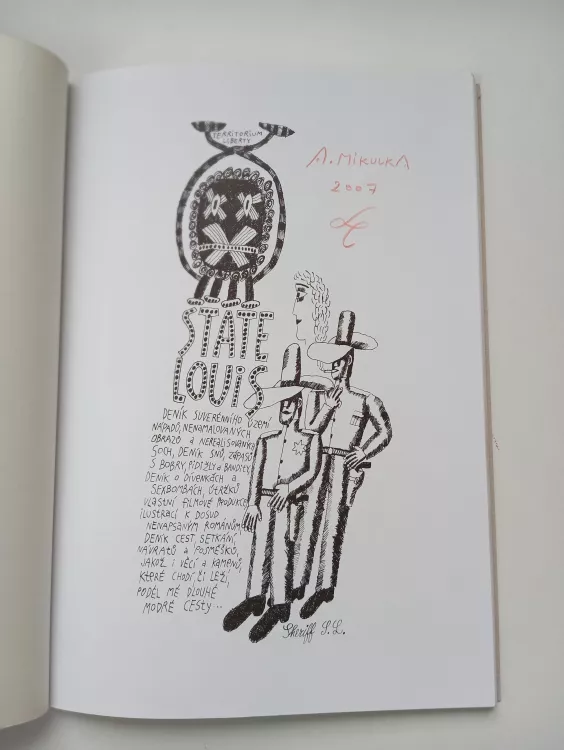 TERRITORIUM
LIBERTY
A. MIKULKA
2007
STATE
LOUIS
DENÍK SUVERÉNNÍHO ÚZEMÍ
NÁPADŮ, NENAMALOVANÝCH
OBRAZŮ a NEREALISOVANÝCH
SOCH, DENÍK SNŮ, ZÁPASŮ
S BOBRY, PIDIZLY a BANDITY,
DENÍK O DÍVENKÁCH a
SEXBOMBÁCH, ÚTRŽKŮ
VLASTNÍ FILMOVÉ PRODUKCE,
ILUSTRACÍ K DOSUD
NENAPSANÝM ROMÁNŮM
DENÍK CEST, SETKÁNÍ,
NÁVRATŮ a POSMĚŠKŮ,
JAKOŽ i VĚCÍ a KAMENŮ,
KTERÉ CHODÍ, ČI LEŽÍ,
PODÉL MÉ DLOUHÉ
MODRÉ CESTY...
Sheriff S.L.